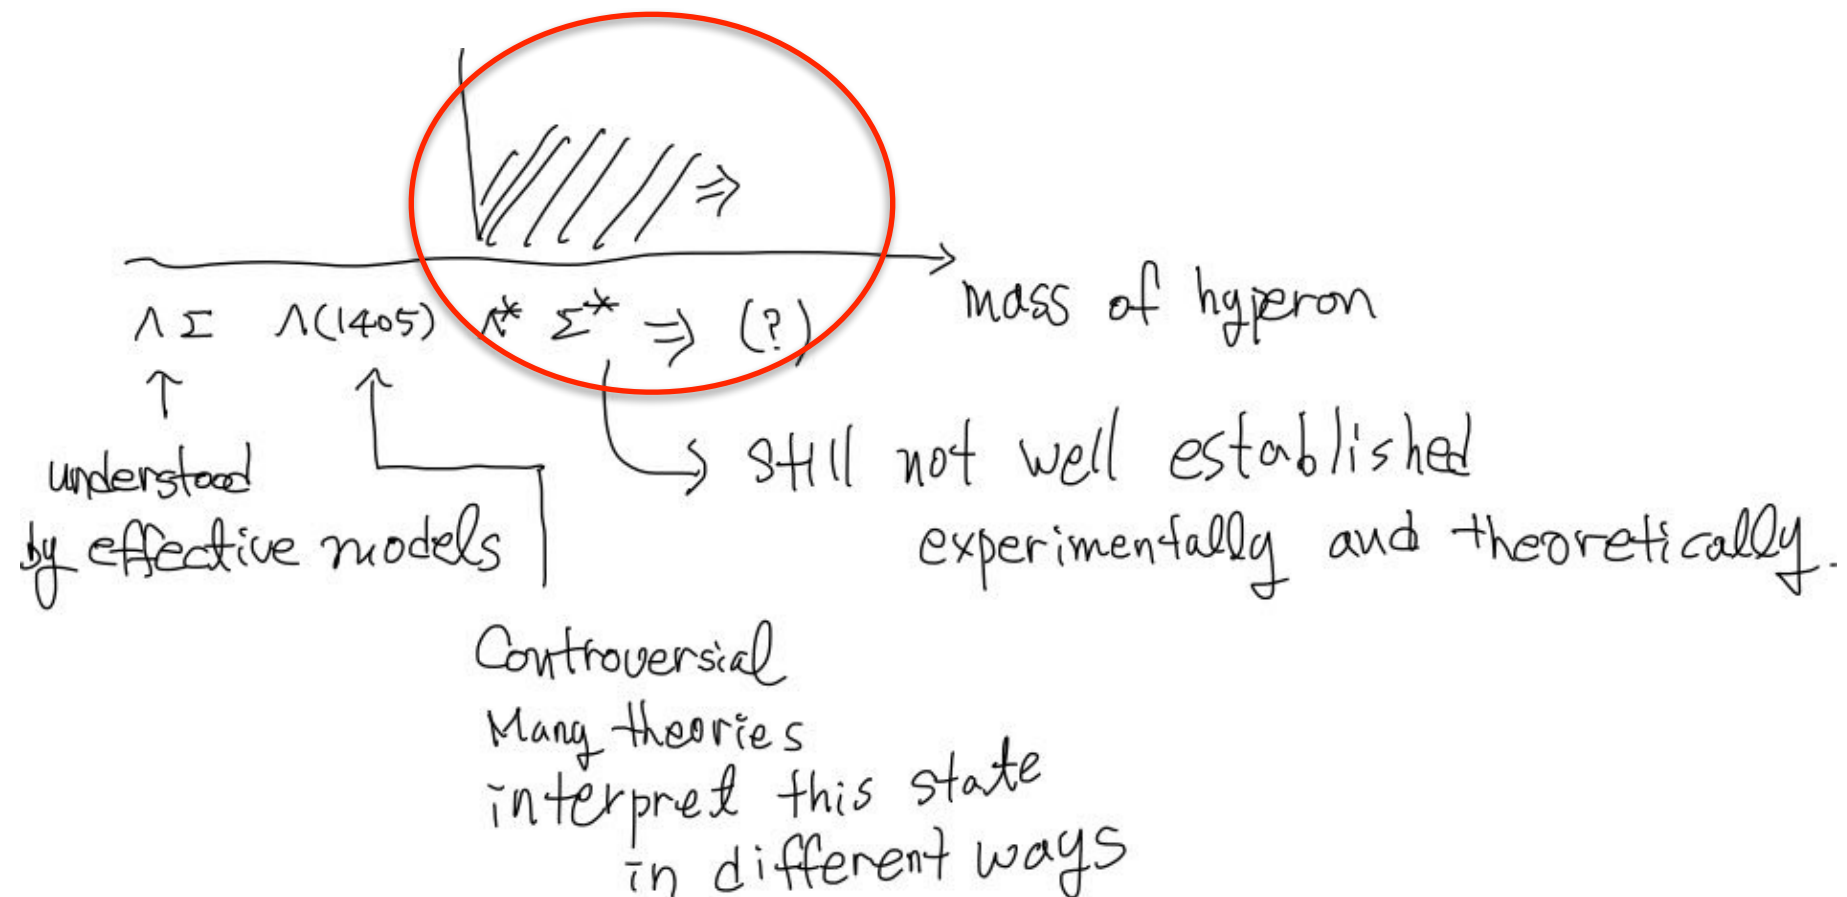 Λ Σ Λ(1405) Λ* Σ* ⇒ (?)
mass of hyperon
understood
by effective models
still not well established
experimentally and theoretically.
Controversial
Many theories
interpret this state
in different ways